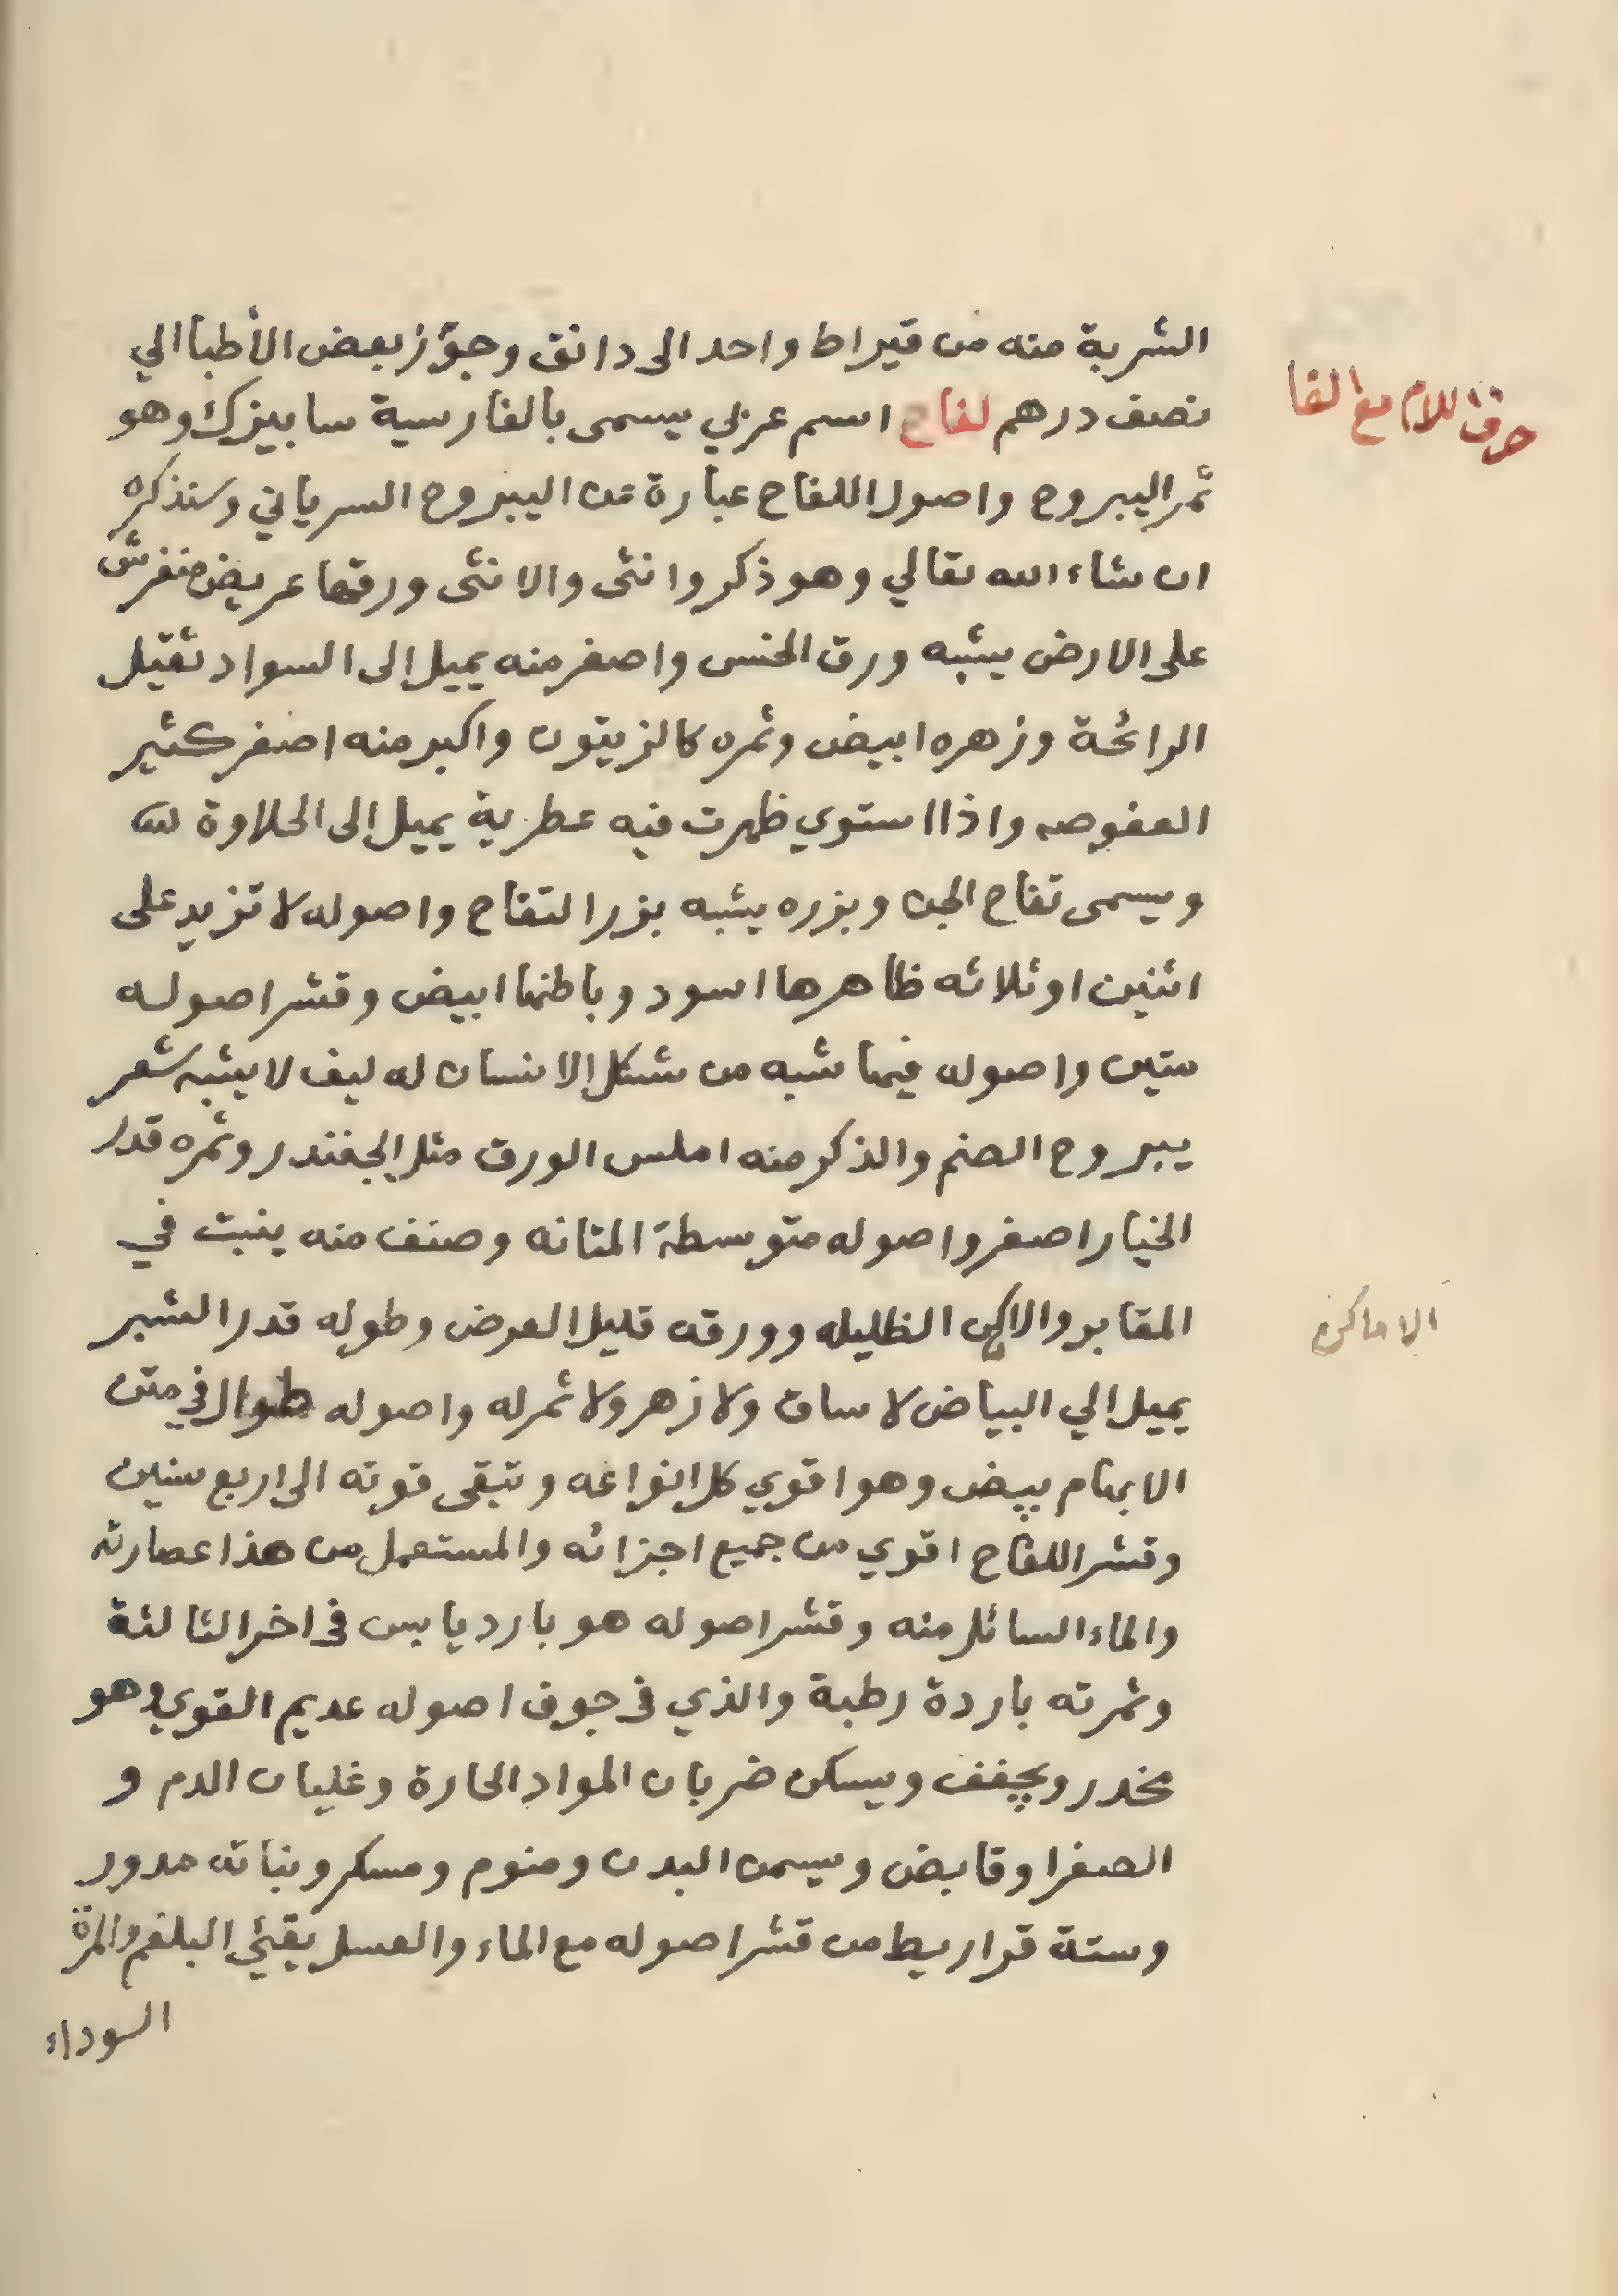 الشربة منه من قيراط واحد الى دانق وجوّز بعض الأطبا الي
حرف اللام مع الفا
نصف درهم لفاح اسم عربي يسمى بالفارسية سابيزك وهو
ثمر اليبروح واصول اللفاح عبارة عن اليبروح السرياني وسنذكره
ان شاء الله تعالي وهو ذكر وانثى والانثى ورقها عريض منفرش
على الارض يشبه ورق الخس واصغر منه يميل الى السواد ثقيل
الرائحة وزهره ابيض وثمره كالزيتون واكبر منه اصفر كثير
العفوصه واذا استوي ظهرت فيه عطرية يميل الى الحلاوة
ويسمى تفاح الجن وبزره يشبه بزر التفاح واصوله لا تزيد على
اثنين او ثلاثه ظاهرها اسود وباطنها ابيض وقشر اصوله
متين واصوله فيها شبه من شكل الانسان له ليف لا يشبه شعر
يبروح الصنم والذكر منه املس الورق مثل الجغندر وثمره قدر
الخيار اصفر واصوله متوسطة المتانه وصنف منه ينبت في
المقابر والاكن الظليله وورقه قليل العرض وطوله قدر الشبر
الاماكن
يميل الي البياض لا ساق ولا زهر ولا ثمر له واصوله طوال في متن
الابهام بيض وهو اقوي كل انواعه وتبقى قوته الى اربع سنين
وقشر اللفاح اقوي من جميع اجزائه والمستعمل من هذا عصارته
والماء السائل منه وقشر اصوله هو بارد يابس في اخر الثالثة
وثمرته باردة رطبة والذي في جوف اصوله عديم القوي وهو
مخدر ويجفف ويسكن ضربان المواد الحارة وغليان الدم و
الصفرا وقابض ويسمن البدن ومنوم ومسكر ونباته مدور
وستة قراريط من قشر اصوله مع الماء والعسل يقيئ البلغم والمرة
السوداء